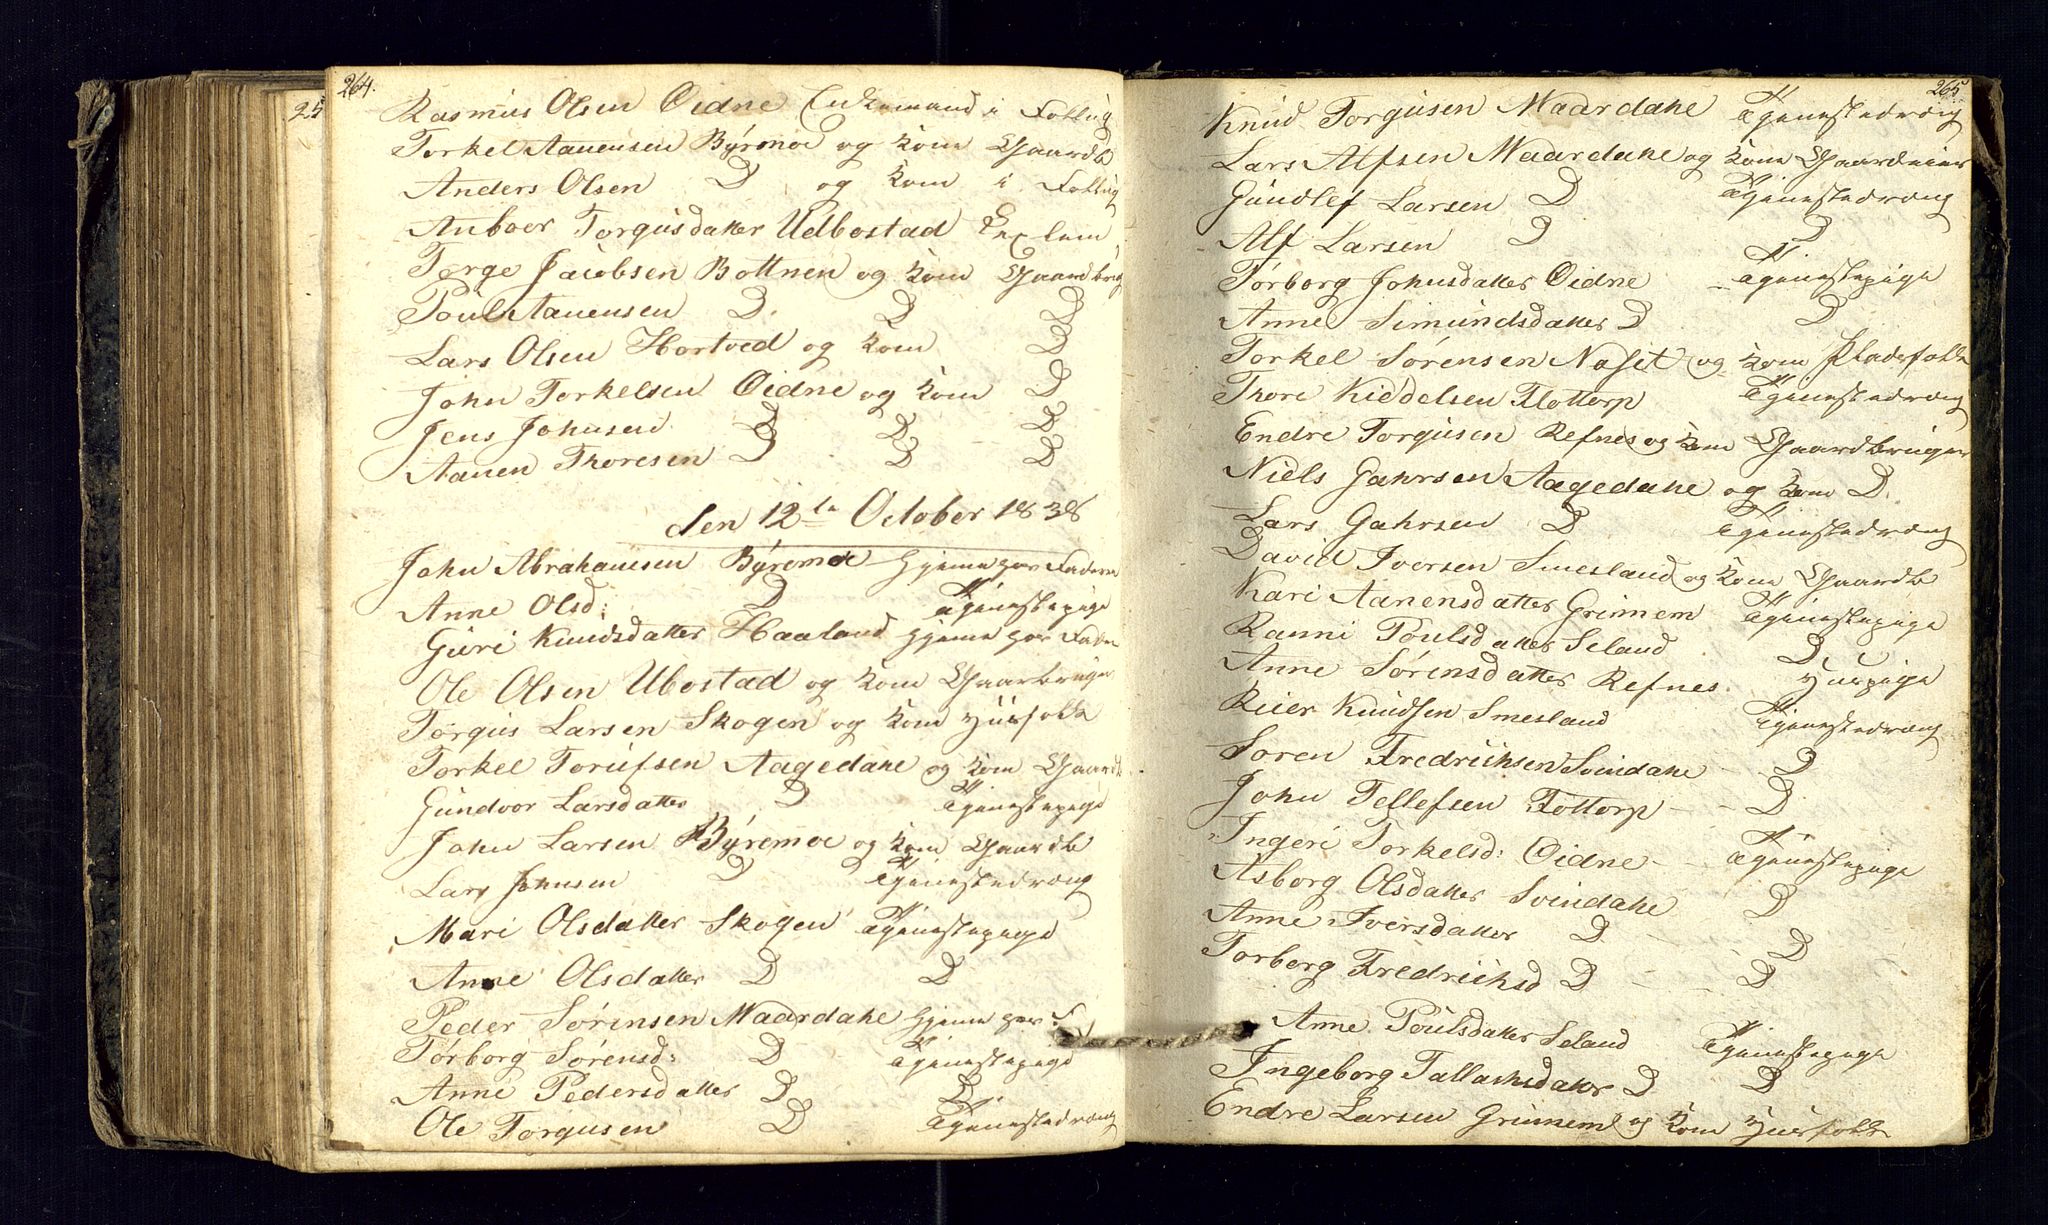 264.
25
Rasmus Olsen Øidne Enkemand i Follug
Torkel Aanensen Býrmoe og Kone Gaardb
Anders Olsen D og Kone i Follug
Anboer Torgusdatter Udbostad
Terge Jacobsen Bottnen og Kone Gaardbrug
Poul Aanensen D. D D
Lars Olsen Hortved og Kone D
John Torkelsen Øidne og Kone D
Jens Johnsen D D D
Aanen Thoresen D D D
den 12te October 1838
John Abrahamsen Býremoe Hjeme hos Fadern
Anne Olsd: D Tjenestepige
Guri Knudsdatter Haaland hjeme hos Fader
Ole Olsen Ubostad og Kone Gaardbruger
Torgus Larsen Skogen og Kone Huusfolk
Torkel Torufsen Aagedahe og Kone Gaardb
Gundvor Larsdatter D Tjenestepige
John Larsen Býremoe og Kone Gaardb
Lars Johnsen D Tjenestedræng
Mari Olsdatter Skogen Tjenestepige
Anne Olsdatter D D
Peder Sørensen Maardahe hjeme hos F
Torborg Sørensd: D Tjenestepige
Anne Pedersdatter D D.
Ole Torgusen D Tjenestedræng
265
Knud Torgusen Maardahe Tjenestedræng
Lars Alfsen Maardahe og Kone Gaardeier
Gundlef Larsen D Tjenestedræng
Alf Larsen D D
Torborg Johnsdatter Øidne Tjenestepige
Anne Simundsdatter D D
Torkel Sørensen Noset og Kone Pladsfolk
Thore Kiddelsen Flottorp Tjenestedræng
Endre Torgusen Refnes og Kone Gaardbruger
Niels Gahrsen Aagedahe og Kone D.
Lars Gahrsen D Tjenestedræng
David Iversen Smesland og Kone Gaardb
Kari Aanensdatter Grinnem Tjenestepige
Ranni Poulsdatter Seland D.
Anne Sørensdatter Refnes. Huuspige
Reier Knudsen Smesland Tjenestedræng
Soren Fredrichsen Svindahe D
John Tellefsen Fottorp D
Ingeri Torkelsd: Øidne Tjenestepige
Asborg Olsdatter Svindahe D
Anne Iversdatter D D
Torborg Fredrichsd D D
Anne Poulsdatter Seland Tjenestepige
Ingeborg Tallachsdatter D D
Endre Larsen Grinnem og Kone Huusfolk